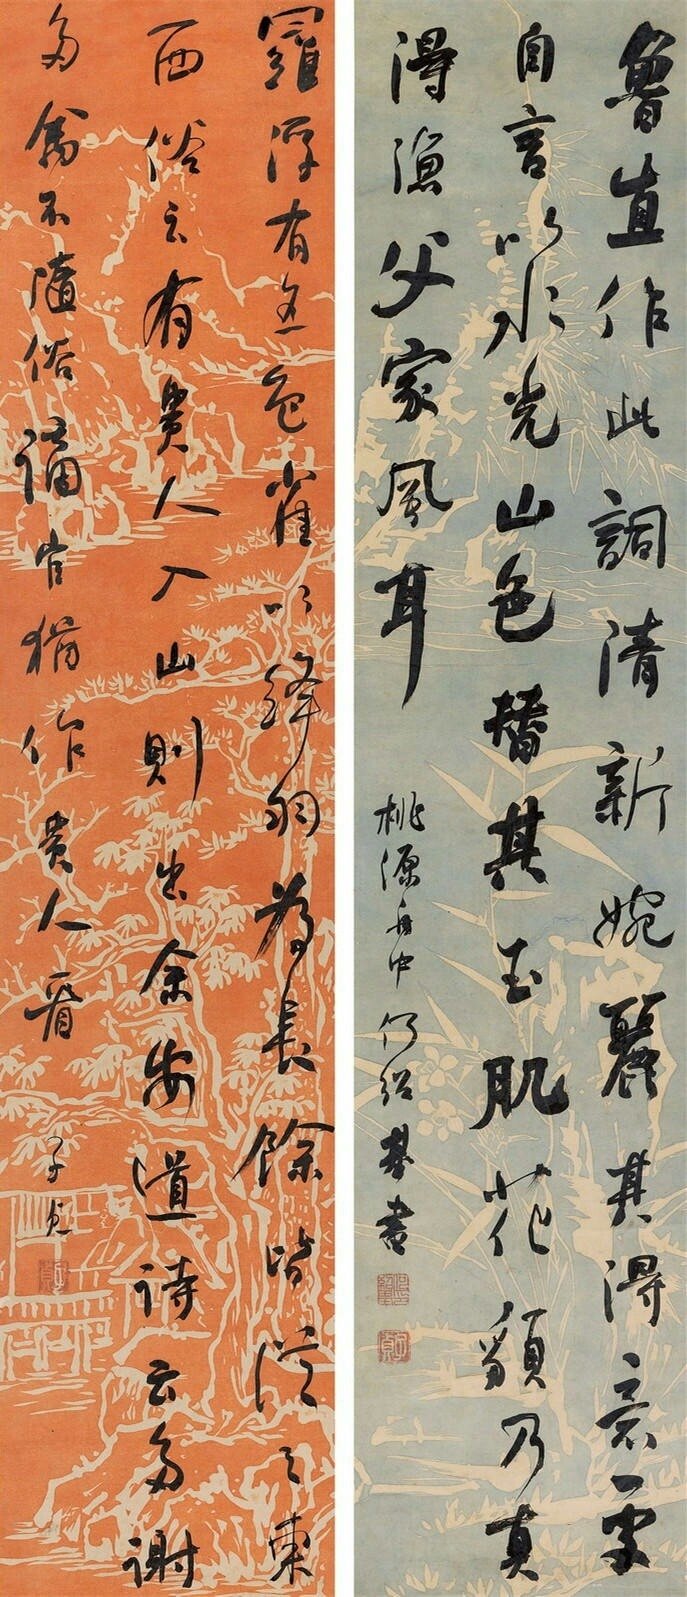 魯直作此詞清新婉麗其得意處
自言以水光山色替其玉肌花貌乃真
得漁父家風耳
桃源舟中何紹基書
羅浮有五色雀以絳羽為長餘皆從之東
西俗云有貴人入山則出余安道詩云多謝
多禽不隨俗謫官猶作貴人看
子貞